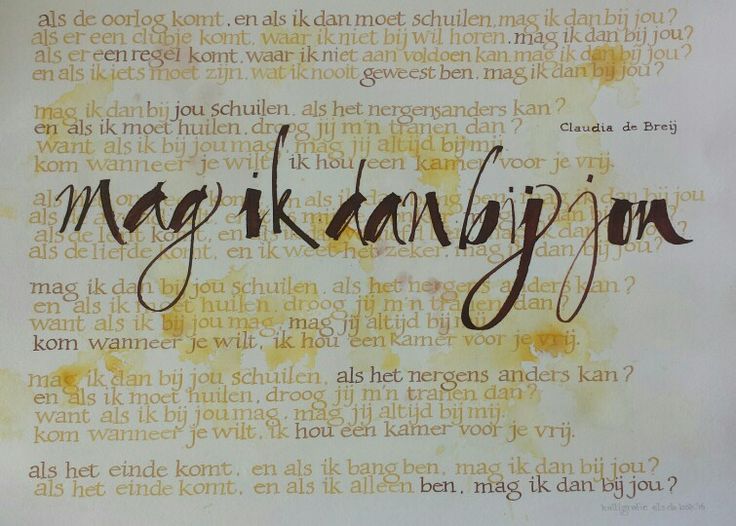 als de oorlog komt, en als ik dan moet schuilen, mag ik dan bij jou?
als er een clubje komt, waar ik niet bij wil horen, mag ik dan bij jou?
als er een regel komt, waar ik niet aan voldoen kan, mag ik dan bij jou?
en als ik iets moet zijn, wat ik nooit geweest ben, mag ik dan bij jou?
mag ik dan bij jou schuilen, als het nergens anders kan?
en als ik moet huilen, droog jij m'n tranen dan?
want als ik bij jou mag, mag jij altijd bij mij.
kom wanneer je wilt, ik hou een kamer voor je vrij.
Claudia de Breij
mag ik dan bij jou
als de liefde komt, en ik weet het zeker, mag ik dan bij jou?
mag ik dan bij jou schuilen, als het nergens anders kan?
en als ik moet huilen, droog jij m'n tranen dan?
want als ik bij jou mag, mag jij altijd bij mij.
kom wanneer je wilt, ik hou een kamer voor je vrij.
mag ik dan bij jou schuilen, als het nergens anders kan?
en als ik moet huilen, droog jij m'n tranen dan?
want als ik bij jou mag, mag jij altijd bij mij.
kom wanneer je wilt, ik hou een kamer voor je vrij.
als het einde komt, en als ik bang ben, mag ik dan bij jou?
als het einde komt, en als ik alleen ben, mag ik dan bij jou?
kalligrafie els de